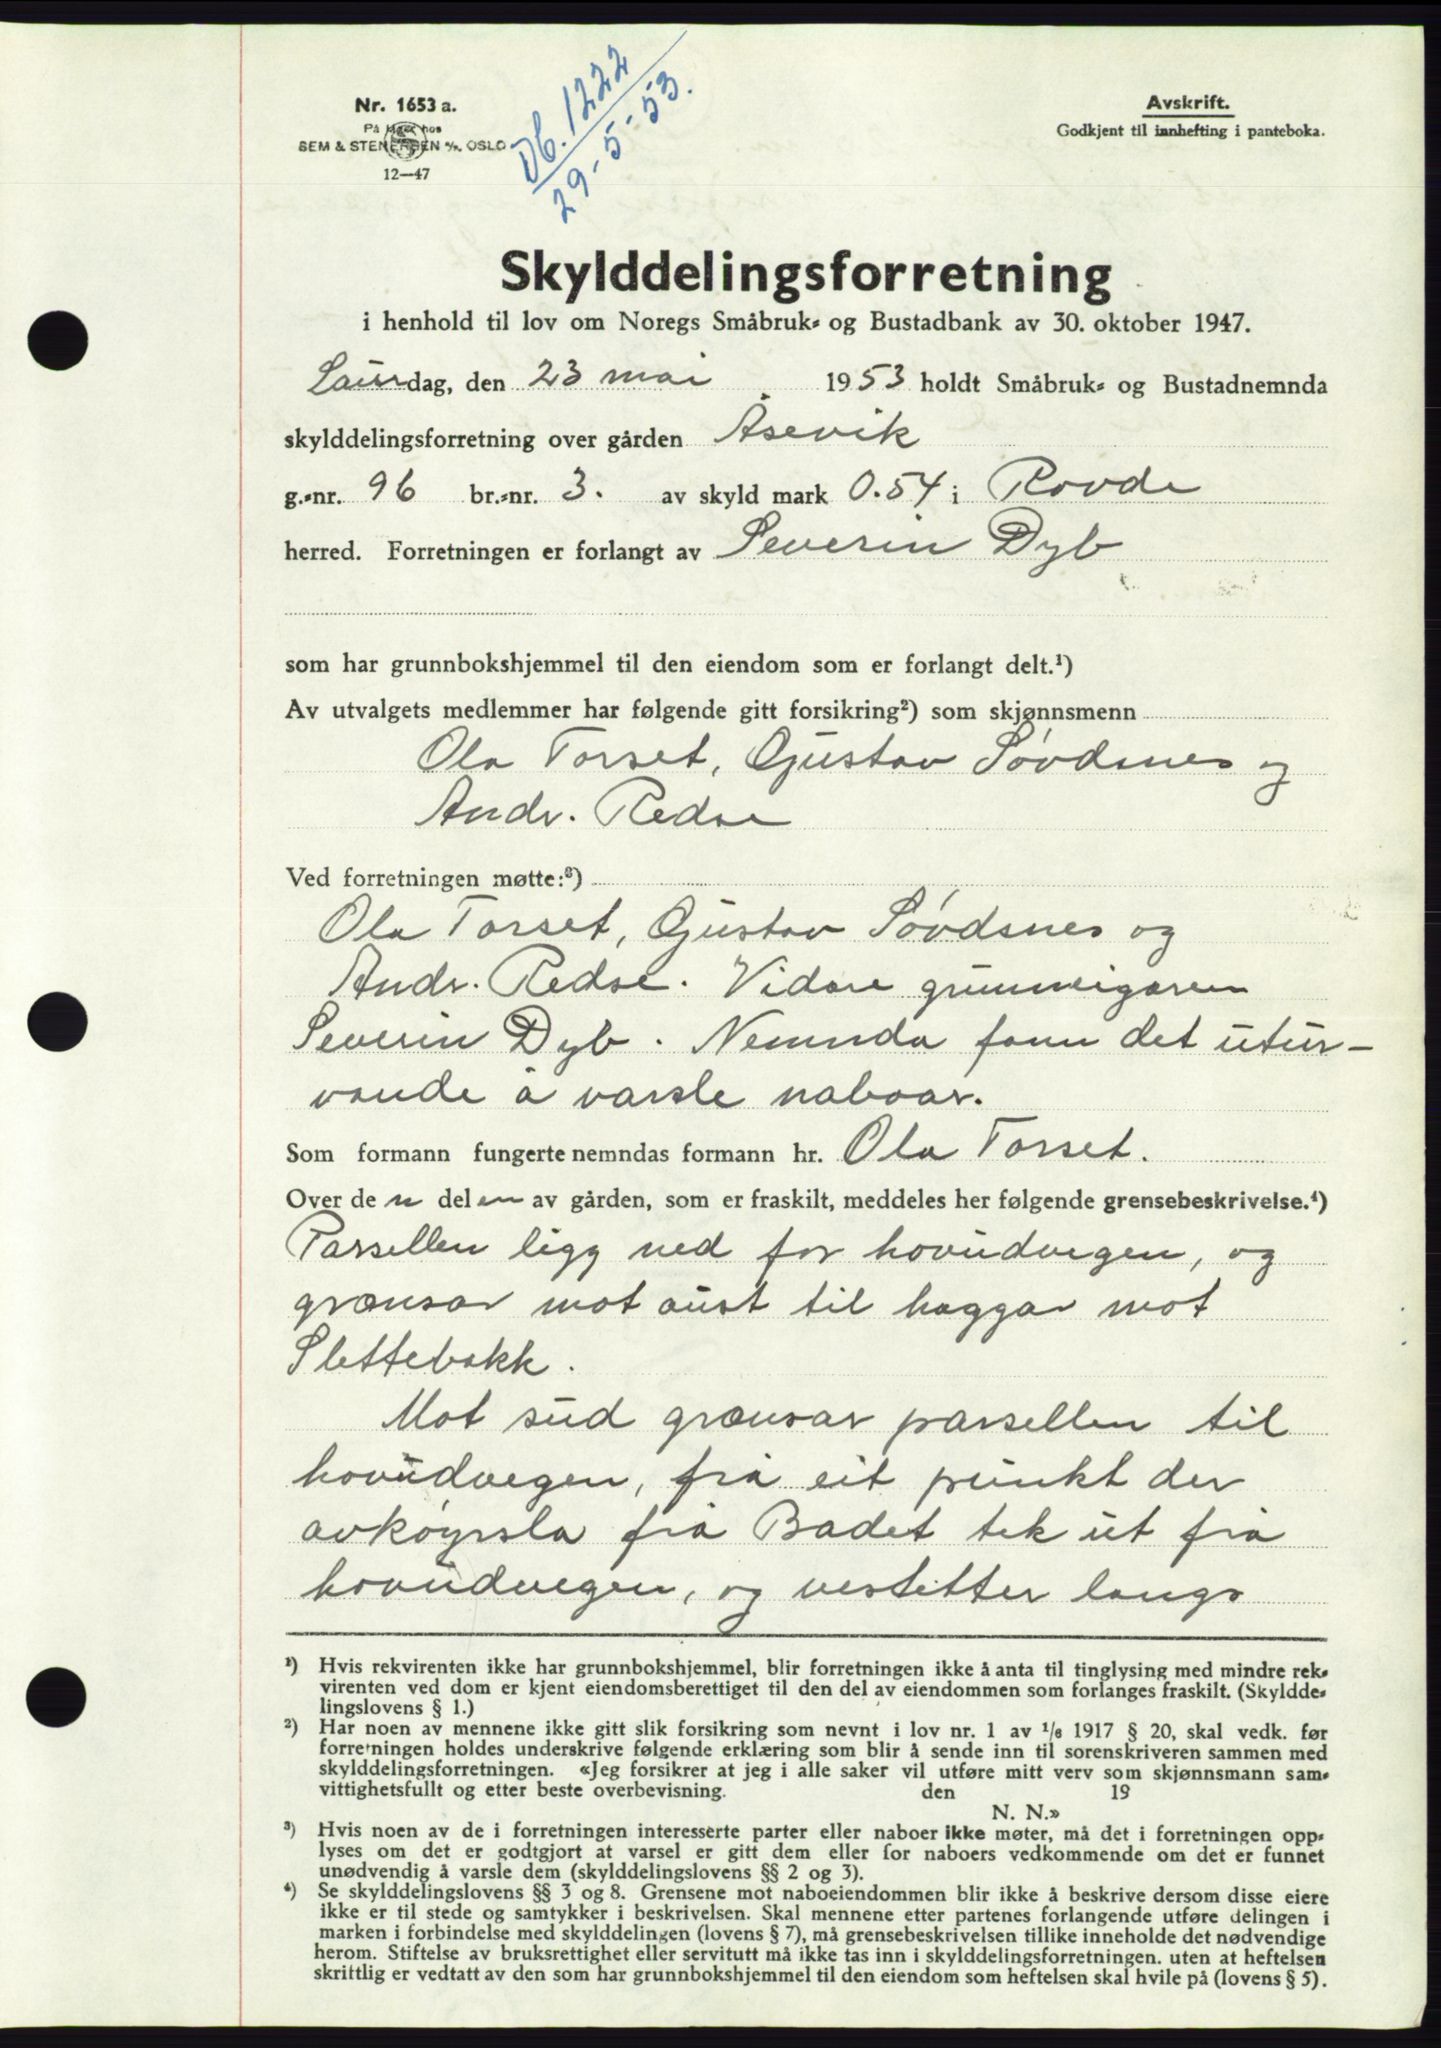 Nr. 1653 a.
På lager hos
SEM & STENERSEN A/S. OSLO
12—47
Db. 1222
29-5-53.
Avskrift.
Godkjent til innhefting i panteboka.
Skylddelingsforretning
i henhold til lov om Noregs Småbruk- og Bustadbank av 30. oktober 1947.
Laurdag, den 23 mai 1953 holdt Småbruk- og Bustadnemnda
skylddelingsforretning over gården Åsevik
g.-nr. 96 br.-nr. 3. av skyld mark 0.54 i Rovde
herred. Forretningen er forlangt av Severin Dyb
som har grunnbokshjemmel til den eiendom som er forlangt delt.¹)
Av utvalgets medlemmer har følgende gitt forsikring²) som skjønnsmenn
Ola Torset, Gjustav Søvdsnes og
Andr. Redse
Ved forretningen møtte:³)
Ola Torset, Gjustav Søvdsnes og
Andr. Redse. Vidare grunneigaren
Severin Dyb. Nemnda fann det utur-
vande å varsle naboar.
Som formann fungerte nemndas formann hr. Ola Torset.
Over den delen av gården, som er fraskilt, meddeles her følgende grensebeskrivelse.⁴)
Parsellen ligg ned for hovudvegen, og
grænsar mot aust til haggar mot
Slettebakk.
Mot sud grænsar parsellen til
hovudvegen, frå eit punkt der
avkøyrsla frå Badet tek ut frå
hovudvegen, og vestetter langs
¹) Hvis rekvirenten ikke har grunnbokshjemmel, blir forretningen ikke å anta til tinglysing med mindre rek-
virenten ved dom er kjent eiendomsberettiget til den del av eiendommen som forlanges fraskilt. (Skyldde-
lingslovens § 1.)
²) Har noen av mennene ikke gitt slik forsikring som nevnt i lov nr. 1 av ¹/₆ 1917 § 20, skal vedk. før
forretningen holdes underskrive følgende erklæring som blir å sende inn til sorenskriveren sammen med
skylddelingsforretningen. «Jeg forsikrer at jeg i alle saker vil utføre mitt verv som skjønnsmann sam-
vittighetsfullt og etter beste overbevisning. den 19
N. N.»
³) Hvis noen av de i forretningen interesserte parter eller naboer ikke møter, må det i forretningen opp-
lyses om det er godtgjort at varsel er gitt dem eller for naboers vedkommende om det er funnet
unødvendig å varsle dem (skylddelingslovens §§ 2 og 3).
⁴) Se skylddelingslovens §§ 3 og 8. Grensene mot naboeiendommen blir ikke å beskrive dersom disse eiere
ikke er til stede og samtykker i beskrivelsen. Skal mennene etter partenes forlangende utføre delingen i
marken i forbindelse med skylddelingen (lovens § 7), må grensebeskrivelsen tillike inneholde det nødvendige
herom. Stiftelse av bruksrettighet eller servitutt må ikke tas inn i skylddelingsforretningen. uten at heftelsen
skriftlig er vedtatt av den som har grunnbokshjemmel til den eiendom som heftelsen skal hvile på (lovens § 5).